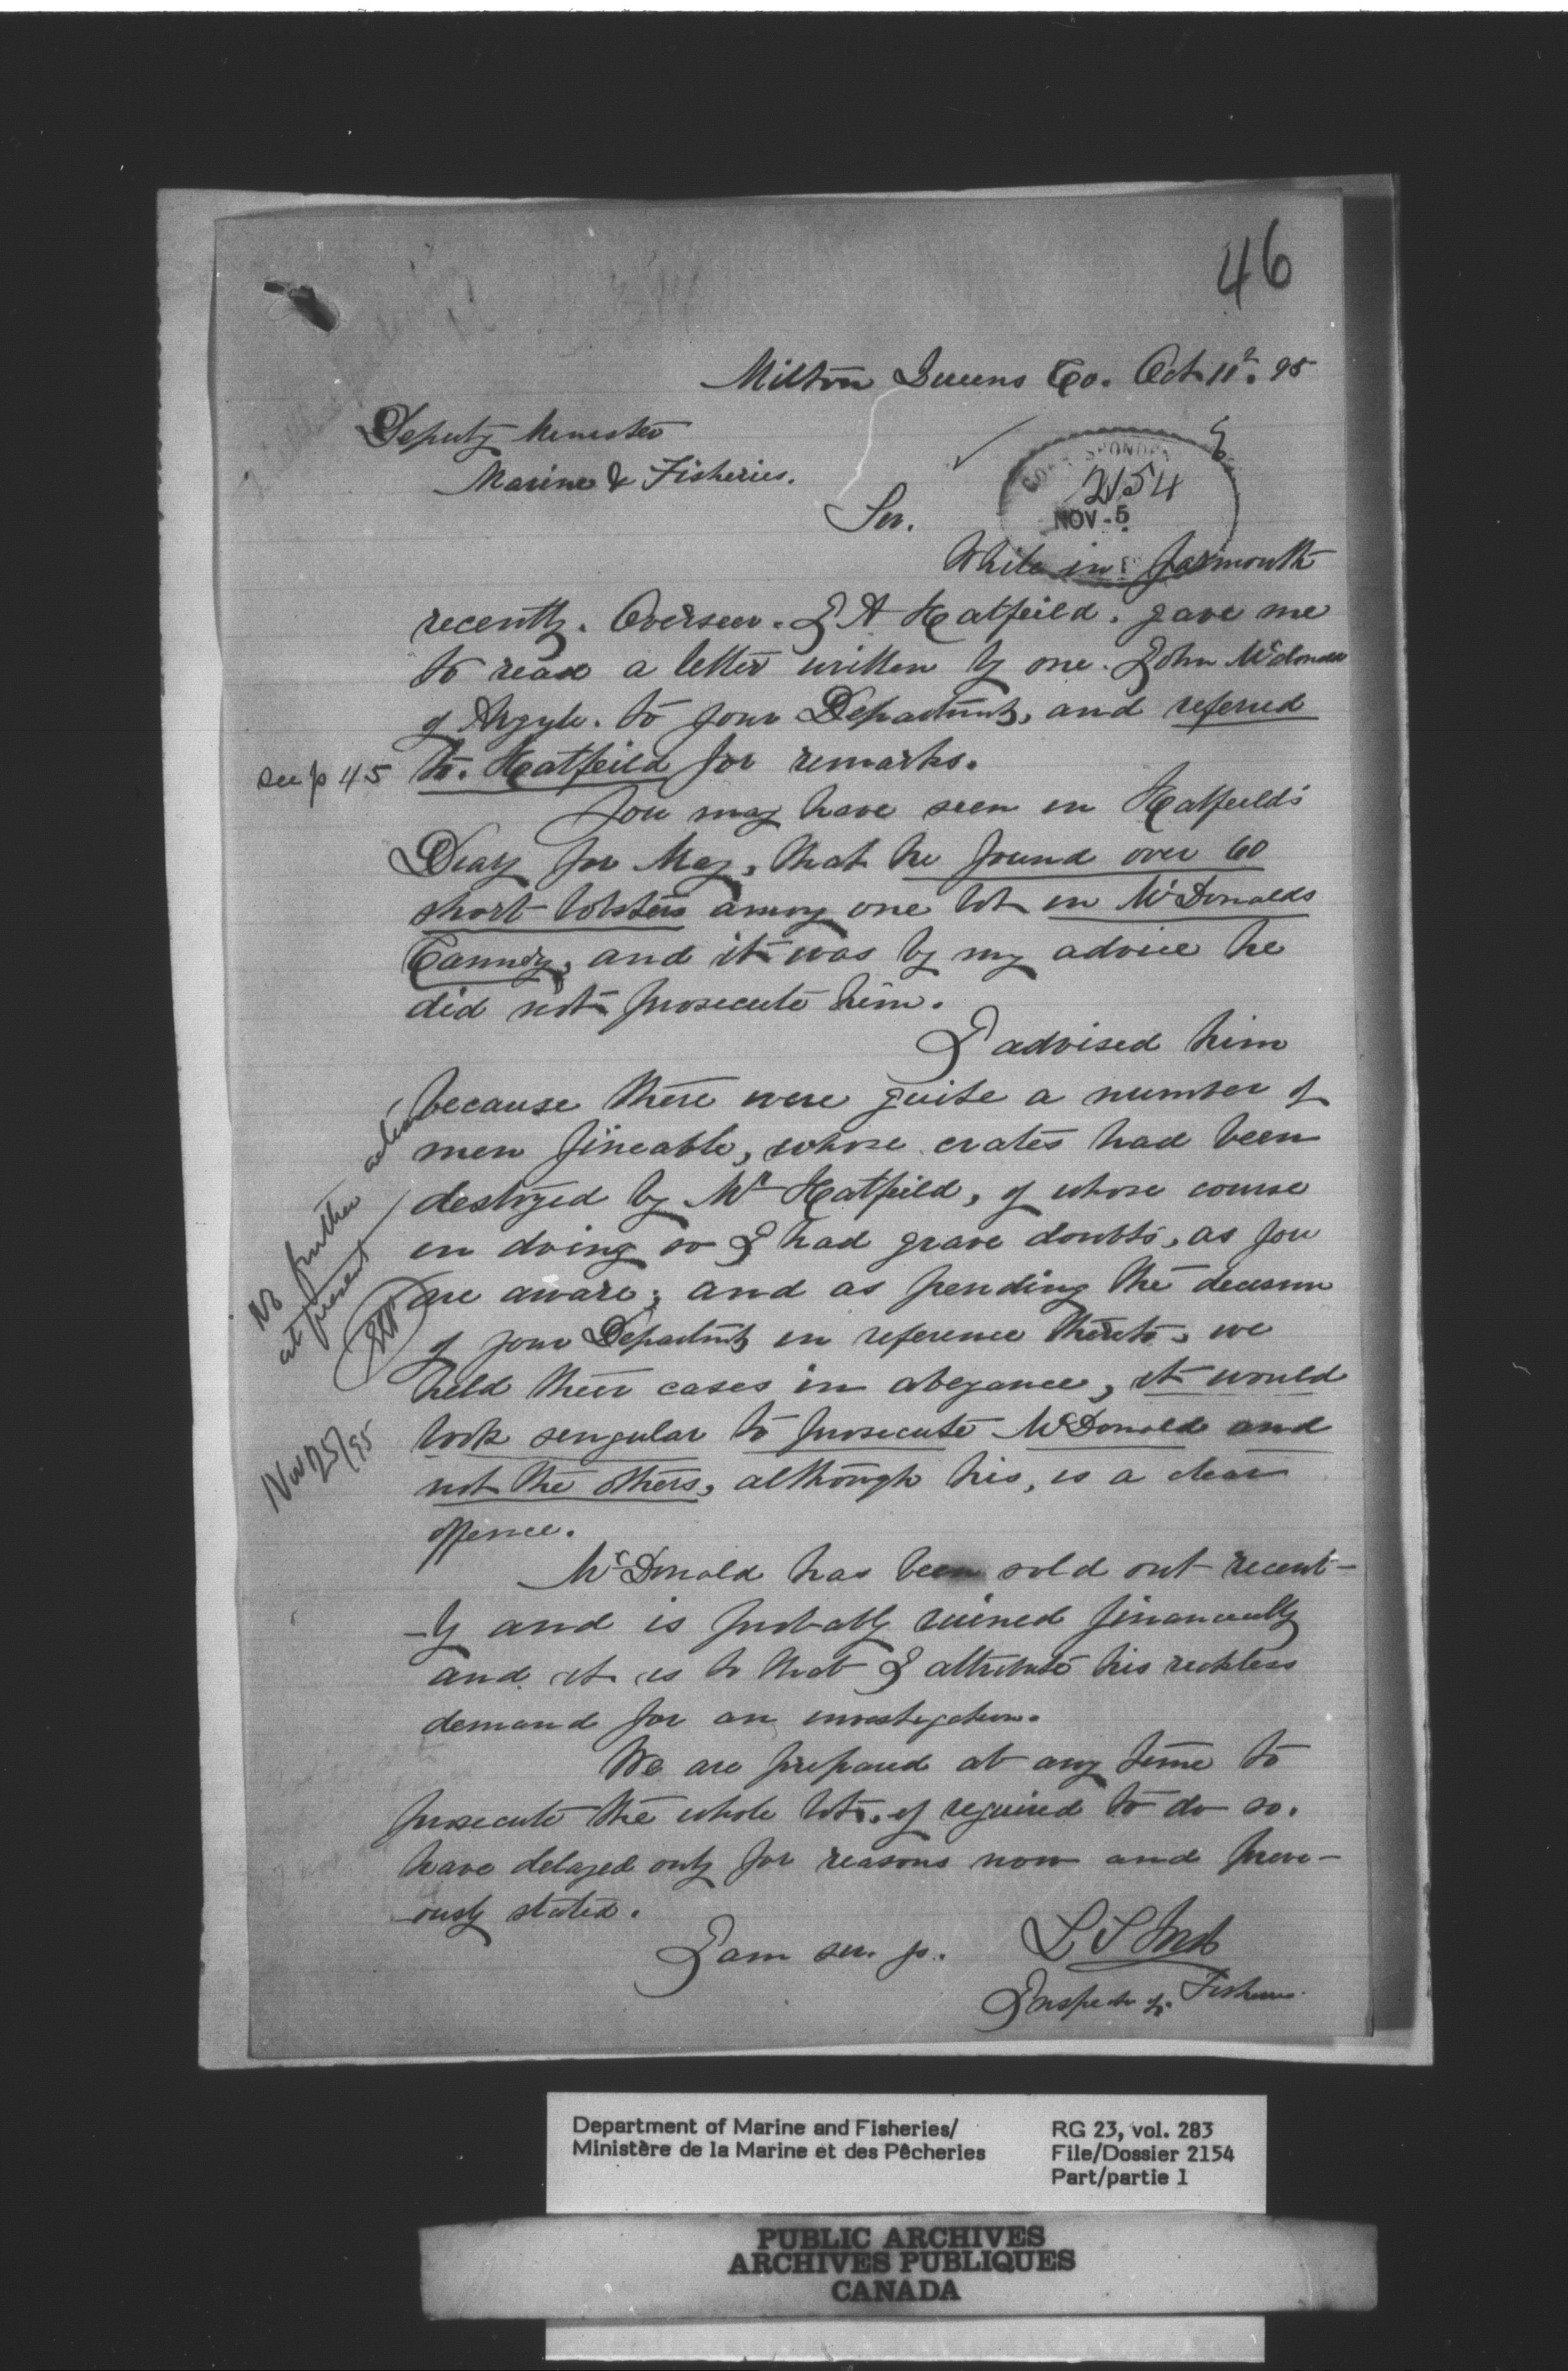 46
Milton Queens Co. Oct 11th. 95
Deputy Minister
Marine & Fisheries.
Sir.
2154
NOV -5
While in Yarmouth
recently. Overseer. J A Hatfeild. gave me
to read a letter written by one. John McDonald
of Argyle. to your Department, and referred
see p 45
to. Hatfeild for remarks.
You may have seen in Hatfeild's
Diary for May, that he found over 60
short lobsters among one lot in McDonalds
Cannery, and it was by my advice he
did not prosecute him.
I advised him
because there were quite a number of
men fineable, whose crates had been
destroyed by Mr Hatfeild, of whose course
in doing so I had grave doubts, as you
are aware; and as pending the decision
of your Department in reference thereto, we
held their cases in abeyance, it would
look singular to prosecute McDonald and
not the others, although his, is a clear
offence.
No further action
at present
Nov 25/95
McDonald has been sold out recent-
-ly and is probably ruined financially
and it is to that I attribute his reckless
demand for an investigation.
We are prepared at any time to
prosecute the whole lot, if required to do so.
have delayed only for reasons now and previ-
-ously stated.
I am sir. yo.
L S Ford
Inspector of Fisheries.
Department of Marine and Fisheries/
Ministère de la Marine et des Pêcheries
RG 23, vol. 283
File/Dossier 2154
Part/partie 1
PUBLIC ARCHIVES
ARCHIVES PUBLIQUES
CANADA